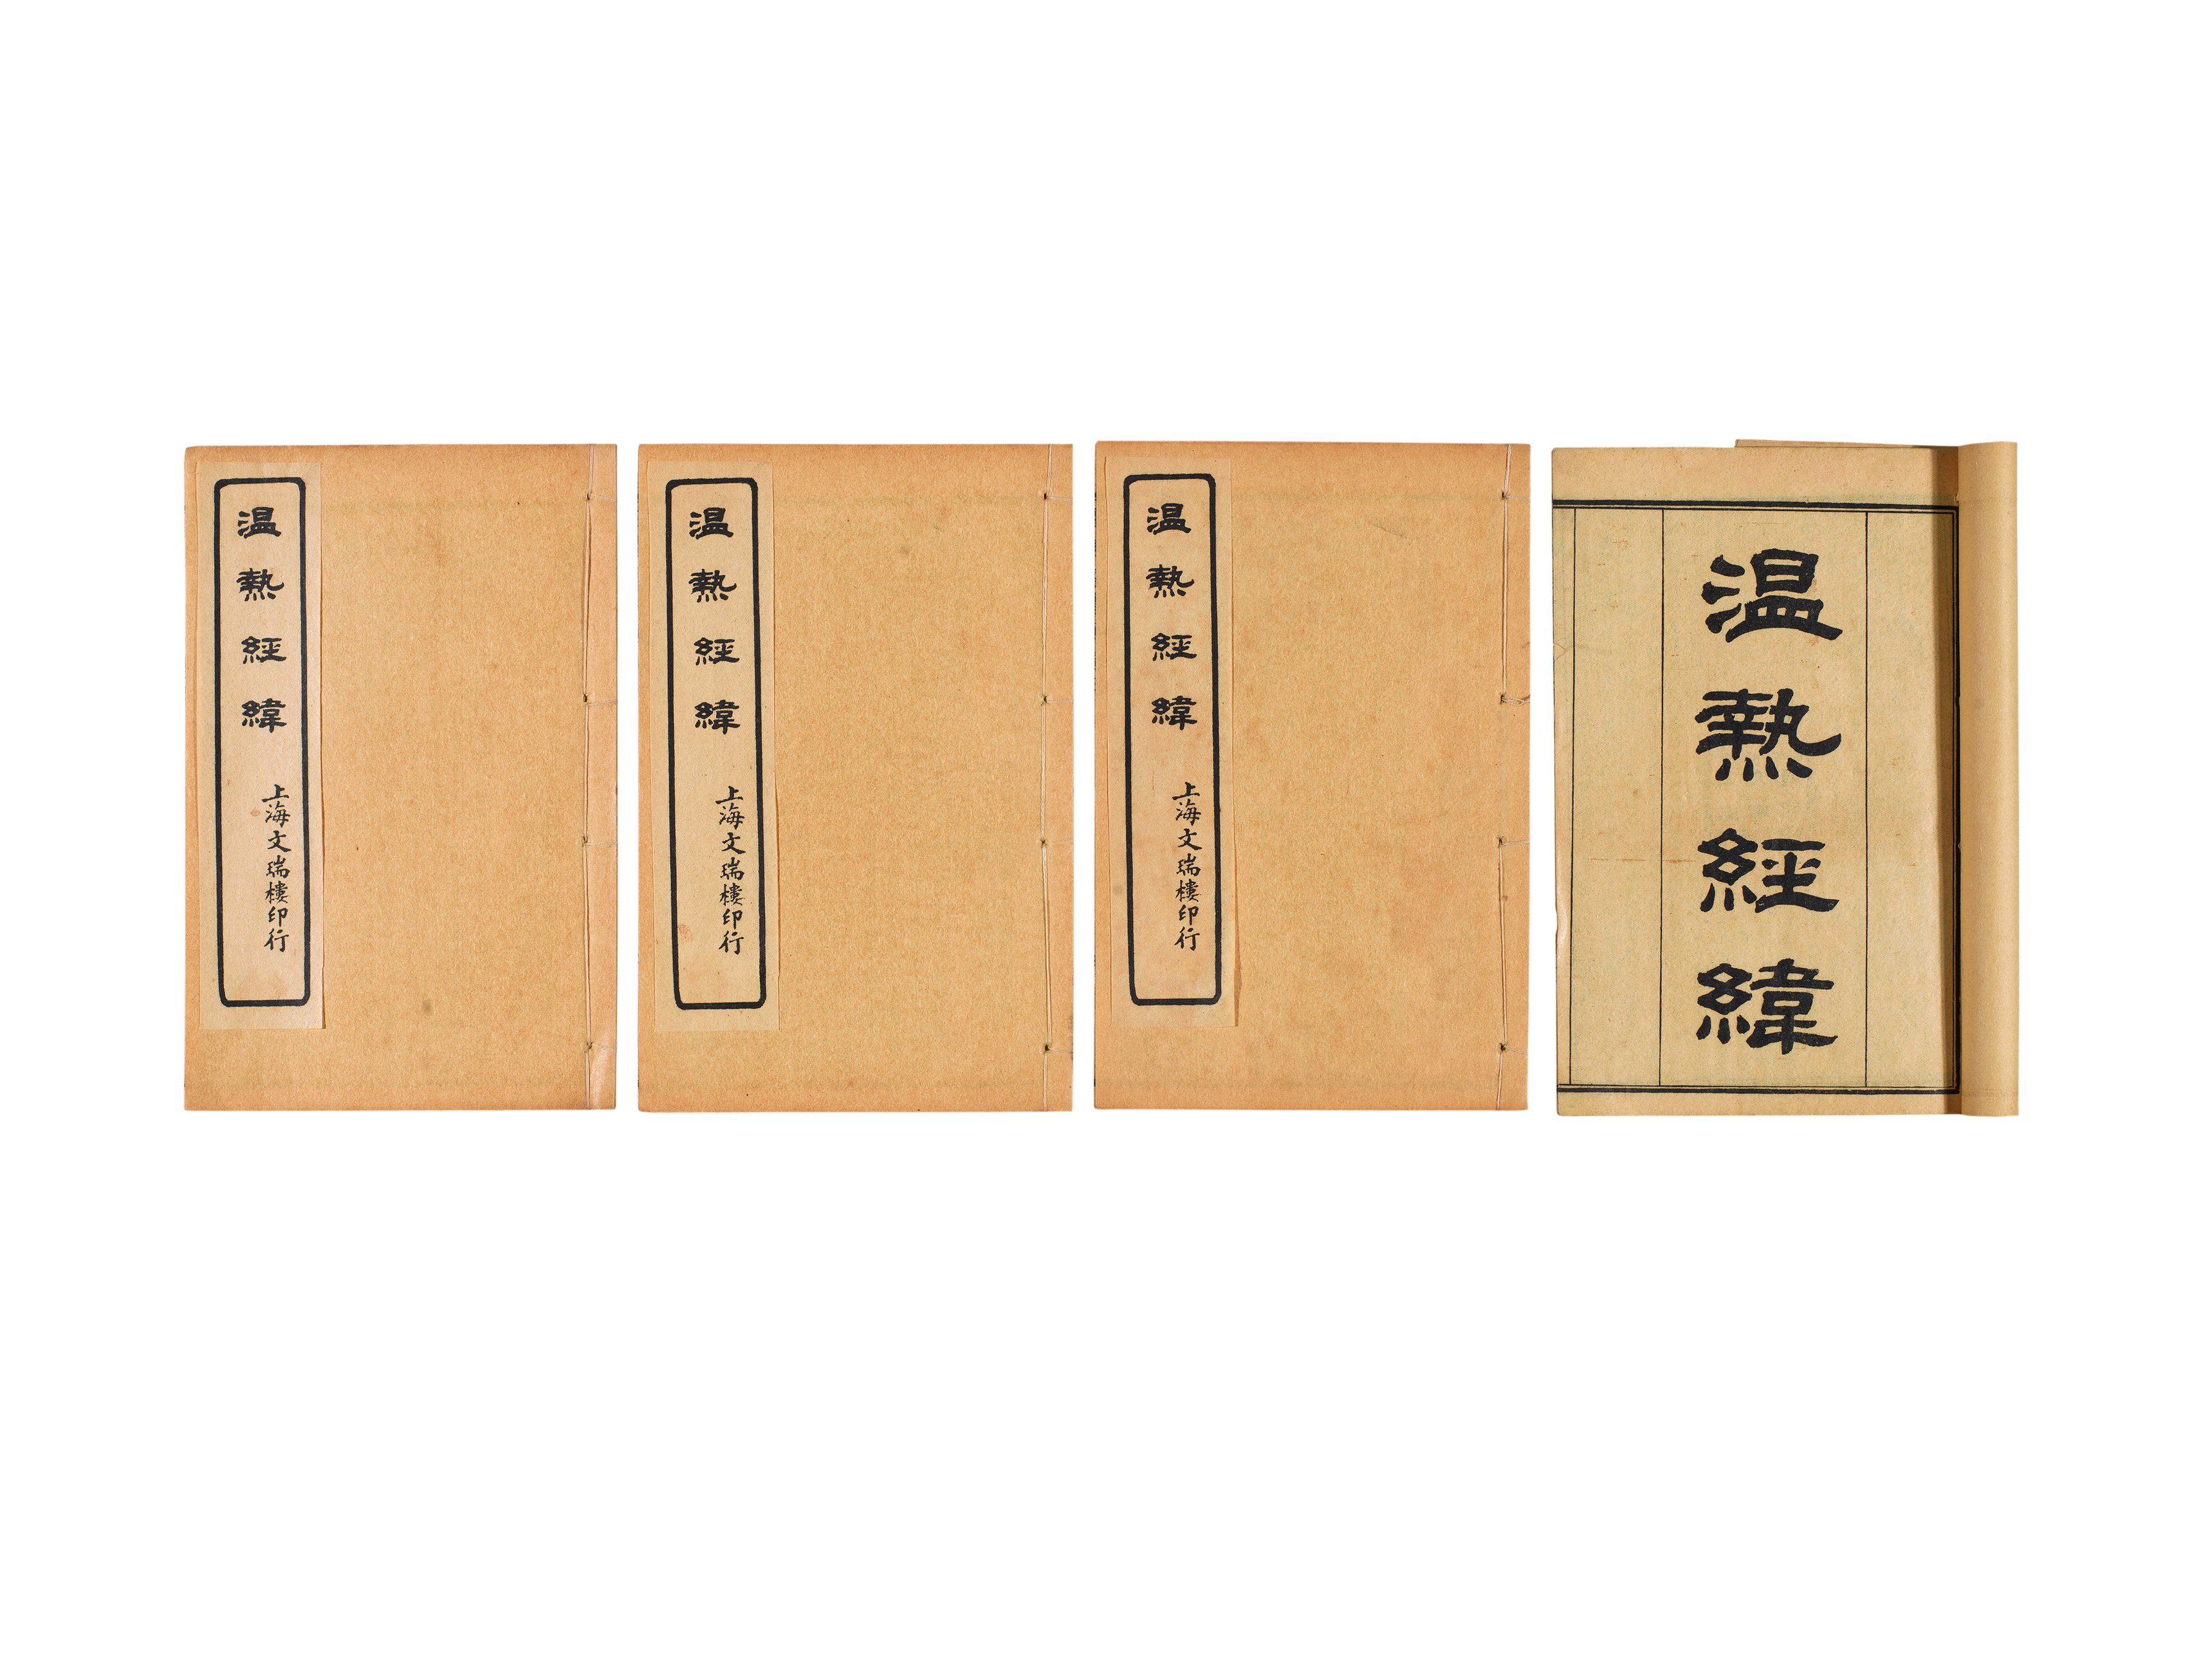 温熱經緯
上海文瑞樓印行
温熱經緯
上海文瑞樓印行
温熱經緯
上海文瑞樓印行
温熱經緯